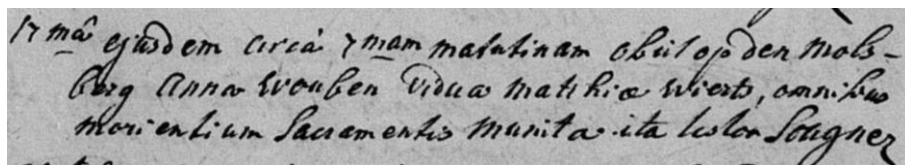 17mâ ejusdem circà 7mam matutinam obiit op den mols-
berg Anna Wouben vidua Matthiæ Wierts, omnibus
morientium Sacramentis munita ita testor Sougnez